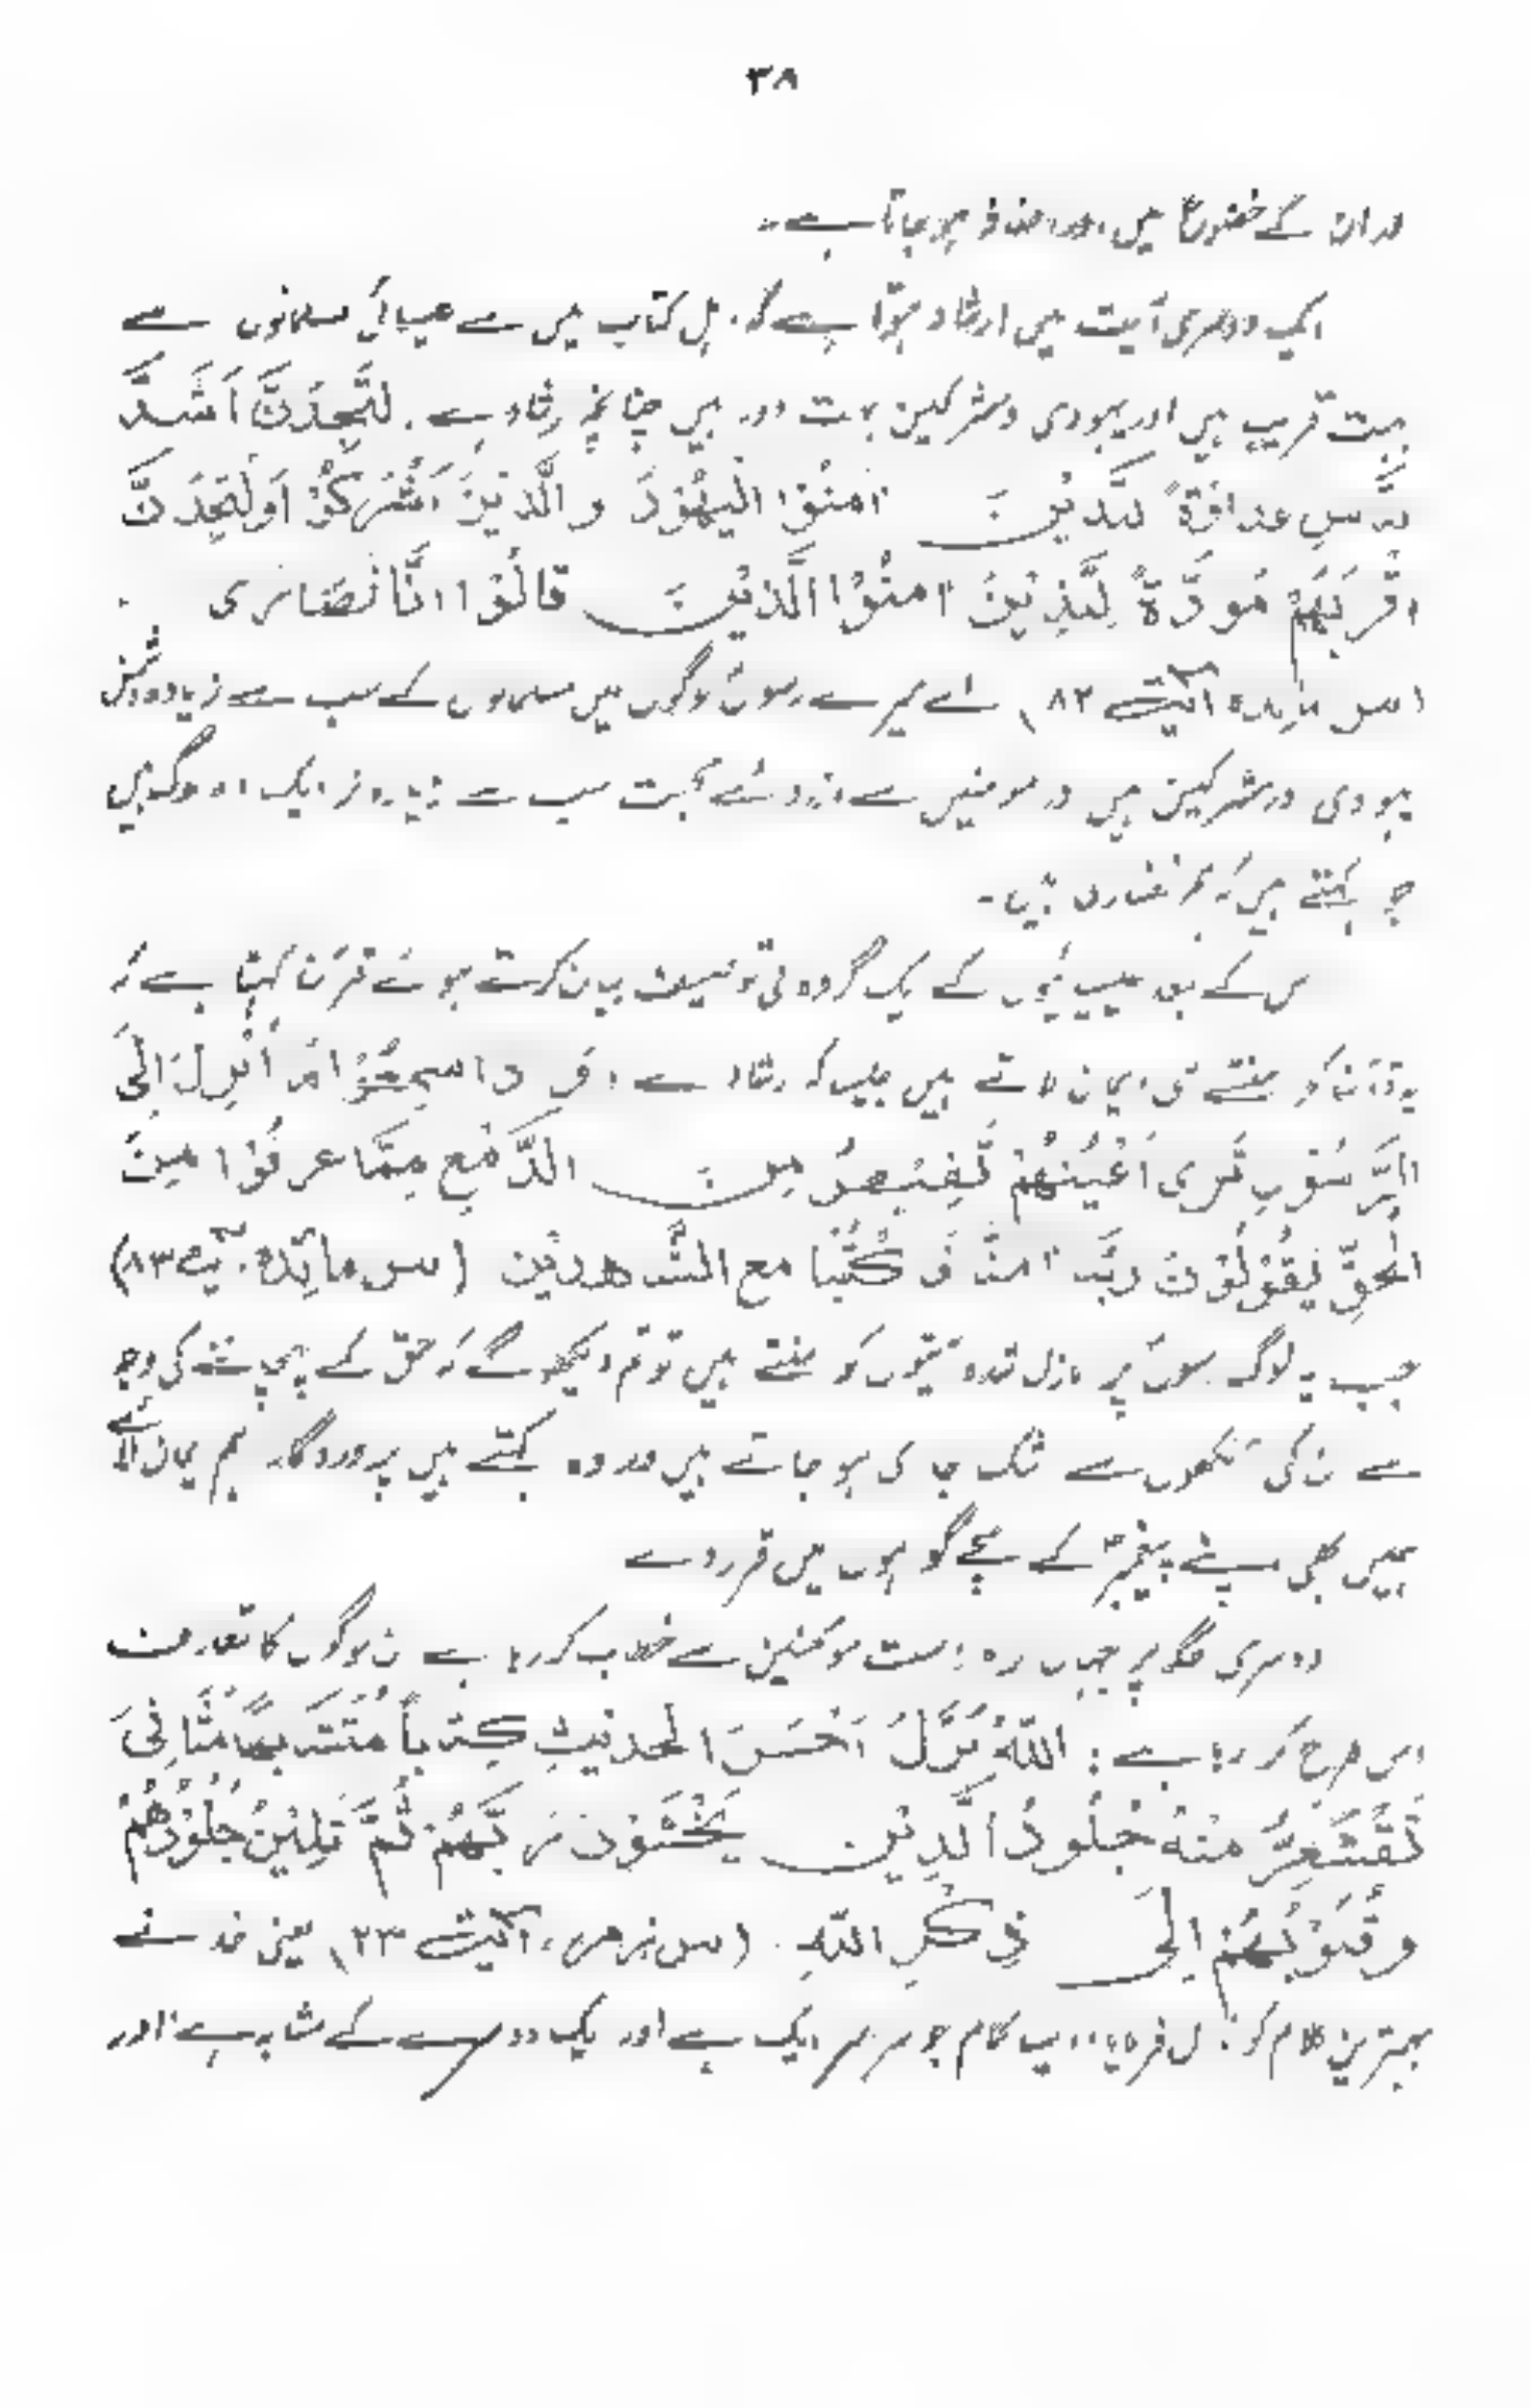 ۳۸
اور ان کے خشوع میں اور اضافہ ہو جاتا ہے۔
ایک دوسری آیت میں ارشاد ہوتا ہے کہ اہل کتاب میں سے عیسائی مسلمانوں سے
بہت قریب ہیں اور یہودی ومشرکین بہت دور ہیں چنانچہ ارشاد ہے۔ لَتَجِدَنَّ اَشَدَّ
النَّاسِ عَدَاوَةً لِلَّذِيْنَ اٰمَنُوا الْيَهُوْدَ وَالَّذِيْنَ اَشْرَكُوْا وَلَتَجِدَنَّ
اَقْرَبَهُمْ مَوَدَّةً لِلَّذِيْنَ اٰمَنُوْا الَّذِيْنَ قَالُوْا اِنَّا نَصَارٰى
(س مائدہ آیت ۸۲) اے میرے رسول لوگوں میں مسلمانوں کے سب سے زیادہ دشمن
یہودی اور مشرکین ہیں اور مومنین سے ازروئے محبت سب سے زیادہ نزدیک وہ لوگ ہیں
جو کہتے ہیں کہ ہم نصاریٰ ہیں۔
اس کے بعد عیسائیوں کے ایک گروہ کی توصیف بیان کرتے ہوئے قرآن کہتا ہے کہ
یہ قرآن کو سنتے ہی ایمان لاتے ہیں جیسا کہ ارشاد ہے: وَاِذَا سَمِعُوْا مَا اُنْزِلَ اِلَى
الرَّسُوْلِ تَرٰى اَعْيُنَهُمْ تَفِيْضُ مِنَ الدَّمْعِ مِمَّا عَرَفُوْا مِنَ
الْحَقِّ يَقُوْلُوْنَ رَبَّنَا اٰمَنَّا فَاكْتُبْنَا مَعَ الشّٰهِدِيْنَ (س مائدہ۔ آیت ۸۳)
جب یہ لوگ رسول پر نازل شدہ آیتوں کو سنتے ہیں تو تم دیکھو گے کہ حق کے پہچاننے کی وجہ
سے ان کی آنکھوں سے اشک جاری ہو جاتے ہیں اور وہ کہتے ہیں پروردگار ہم ایمان لائے
ہمیں بھی اپنے پیغمبرؐ کے سچے گواہوں میں قرار دے
دوسری جگہ پر جہاں براہ راست مومنین سے خطاب کر رہا ہے ان لوگوں کا تعارف
اس طرح کر رہا ہے: اَللّٰهُ نَزَّلَ اَحْسَنَ الْحَدِيْثِ كِتٰباً مُتَشَابِهاً مَّثَانِىَ
تَقْشَعِرُّ مِنْهُ جُلُوْدُ الَّذِيْنَ يَخْشَوْنَ رَبَّهُمْ ثُمَّ تَلِيْنُ جُلُوْدُهُمْ
وَقُلُوْبُهُمْ اِلٰى ذِكْرِ اللّٰهِ۔ (س زمر، آیت ۲۳) یعنی خدا نے
بہترین کلام کو نازل فرمایا، ایسا کلام جو سراسر ایک ہے اور ایک دوسرے کے مشابہ ہے، اور